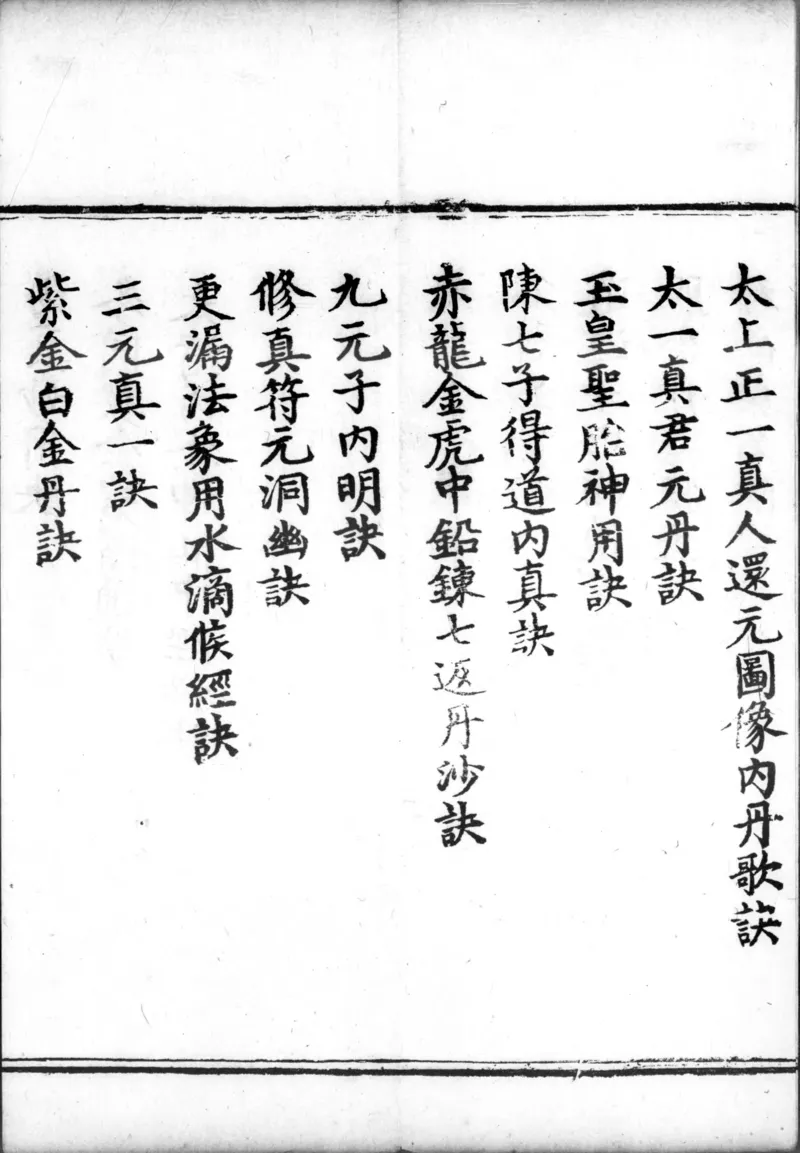 太上正一真人還元圖像內丹歌訣
太一真君元丹訣
玉皇聖胎神用訣
陳七子得道內真訣
赤龍金虎中鉛鍊七返丹沙訣
九元子內明訣
修真符元洞幽訣
更漏法象用水滴候經訣
三元真一訣
紫金白金丹訣